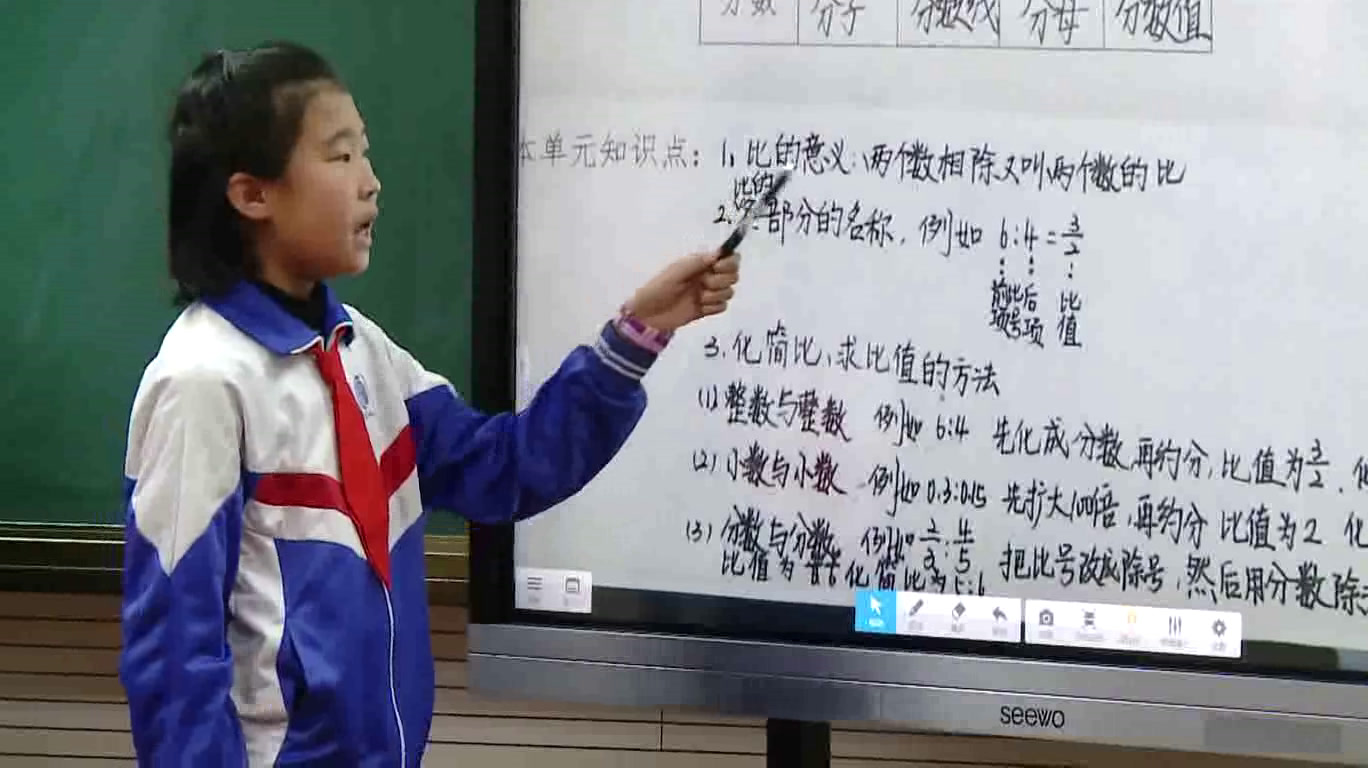 分数 分子 分数线 分母 分数值
本单元知识点：1、比的意义：两个数相除又叫两个数的比
2. 比的各部分的名称，例如 6:4=3/2
前项 比号 后项 比值
3.化简比、求比值的方法
(1)整数与整数 例如 6:4 先化成分数,再约分,比值为3/2.
(2)小数与小数 例如0.3:0.15 先扩大100倍,再约分 比值为2 化
(3)分数与分数 例如2/3:4/5 把比号改成除号,然后用分数除法
比值为 化简比为5:6
seewo